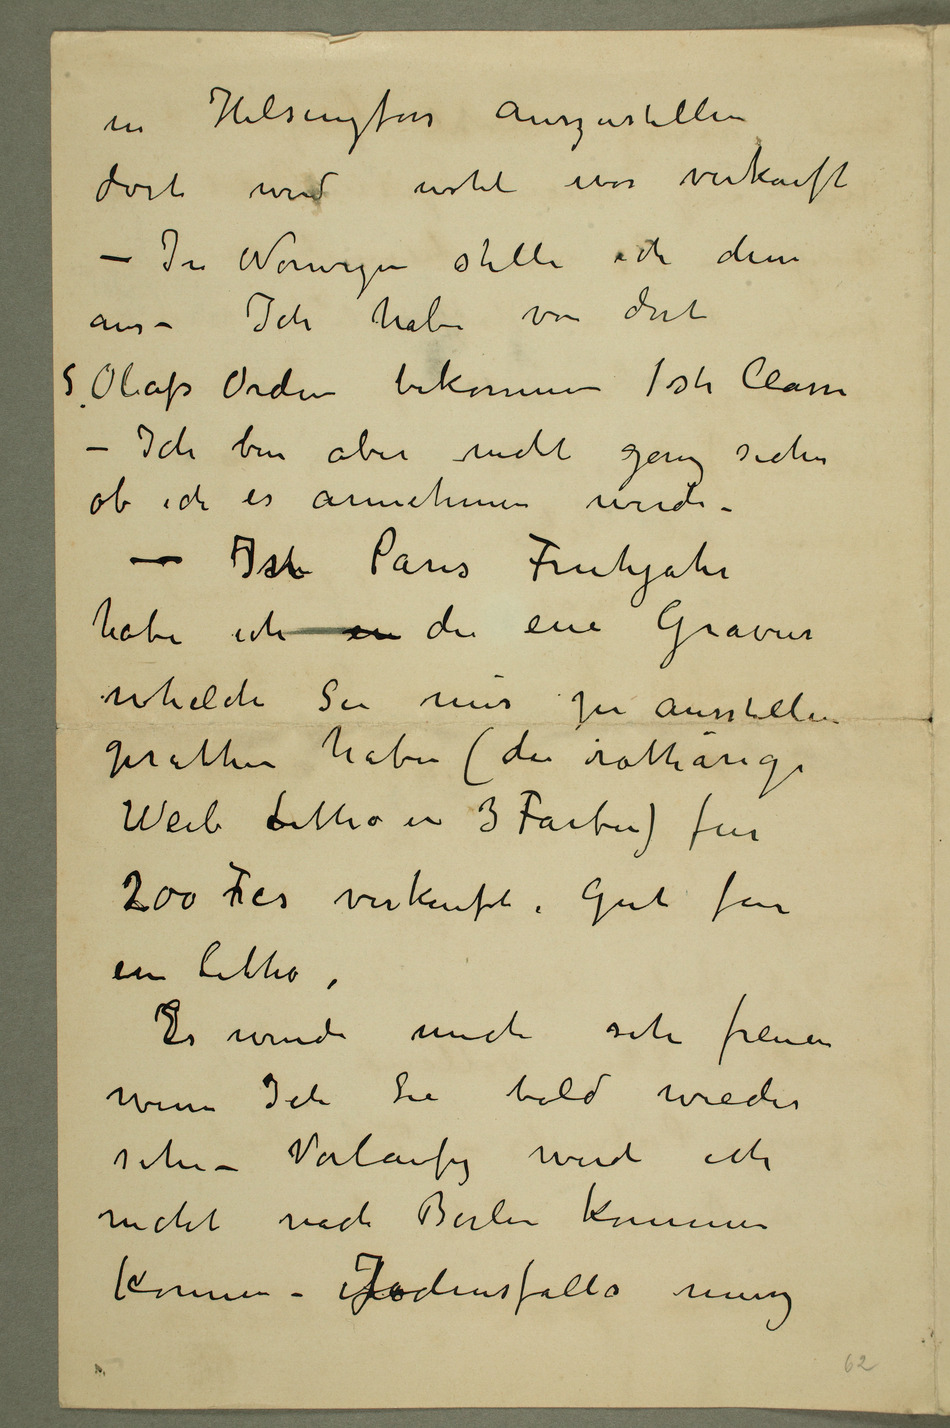 in Helsingfors auszustellen
dort wird wohl was verkauft
– In Norwegen stelle ich denn
aus – Ich habe von dort
S. Olafs Orden bekommen 1ste Classe
– Ich bin aber nicht ganz sicher
ob ich es annehmen werde –
– Paris Fruhjahr
habe ich die eine Gravur
whelche Sie mir zu ausstellen
gerathen haben (die rothärige
Weib Litho in 3 Farben) für
200 Fcs verkauft. Gut für
ein Litho,
Es wurde mich sehr freuen
wenn Ich Sie bald wieder
sehe – Vorlaufig werde ich
nicht nach Berlin kommen
konnen – Jedensfalls muss
62